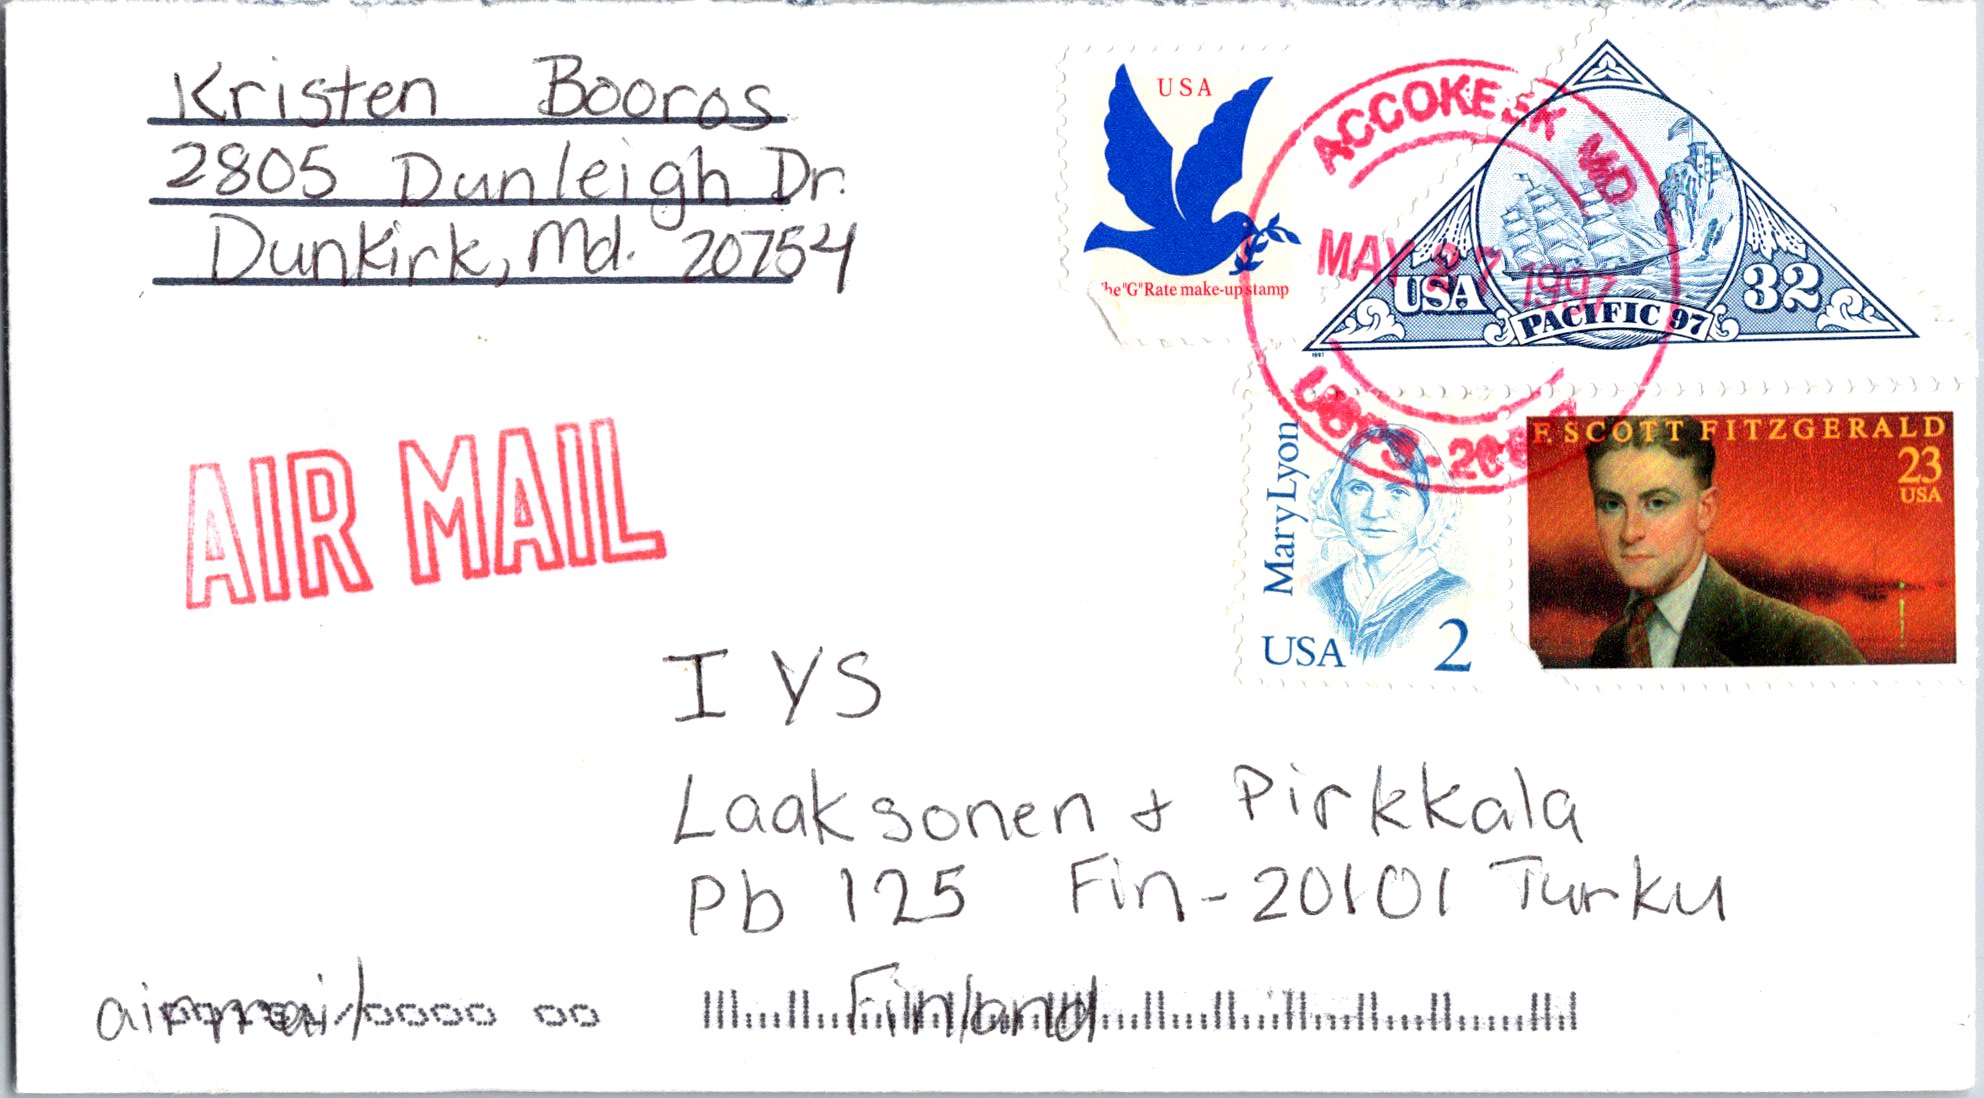 Kristen Booros
2805 Dunleigh Dr.
Dunkirk, Md. 20754
USA
he "G" Rate make-up stamp
ACCOKEEK MD
MAY 27 1997
USPS
USA
32
PACIFIC 97
1997
Mary Lyon
USA 2
F. SCOTT FITZGERALD
23
USA
AIR MAIL
IYS
Laaksonen & Pirkkala
Pb 125 Fin-20101 Turku
Finland
airmail